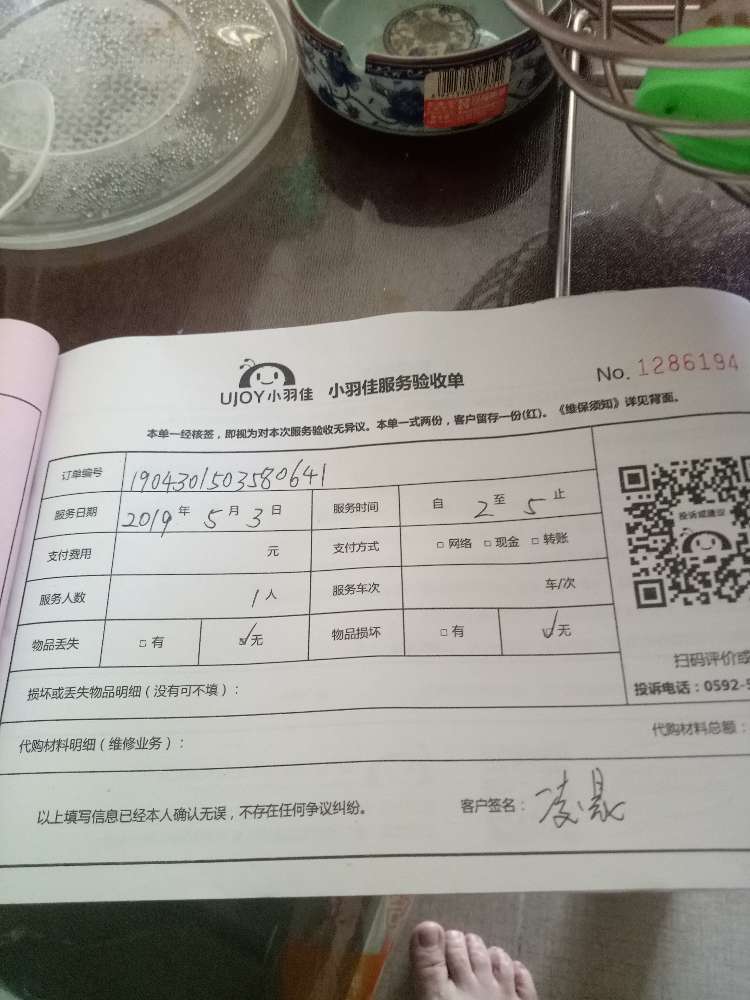 UJOY小羽佳 小羽佳服务验收单 No. 1286194
本单一经核签，即视为对本次服务验收无异议。本单一式两份，客户留存一份(红)。《维保须知》详见背面。
订单编号 1904301503580641
服务日期 2019年5月3日 服务时间 自2至5止
支付费用 元 支付方式 □网络 □现金 □转账
服务人数 1人 服务车次 车/次
物品丢失 □有 ☑无 物品损坏 □有 ☑无
投诉或建议
扫码评价或
损坏或丢失物品明细（没有可不填）：
投诉电话：0592-5
代购材料明细（维修业务）： 代购材料总额：
以上填写信息已经本人确认无误，不存在任何争议纠纷。 客户签名：凌晟